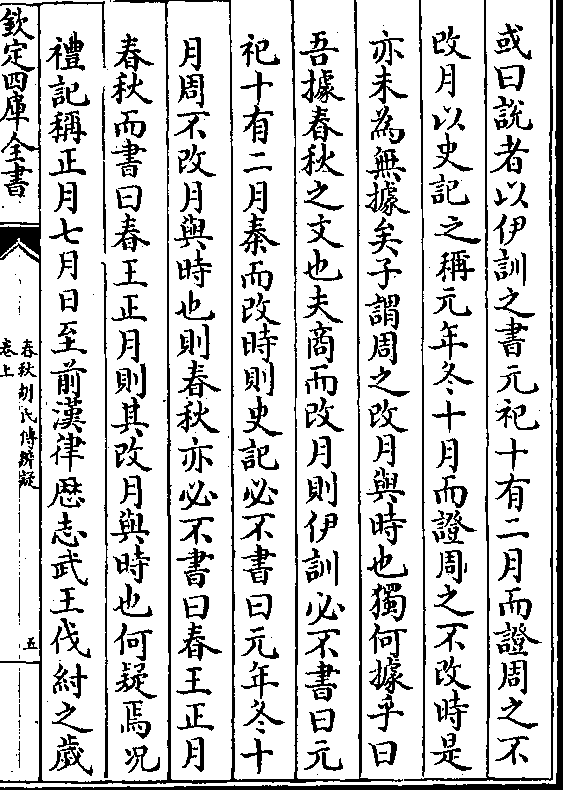 或曰説者以伊訓之書元祀十有二月而證周之不
改月以史記之稱元年冬十月而證周之不改時是
亦未為無據矣子謂周之改月與時也獨何據乎曰
吾據春秋之文也夫商而改月則伊訓必不書曰元
祀十有二月秦而改時則史記必不書曰元年冬十
月周不改月與時也則春秋亦必不書曰春王正月
春秋而書曰春王正月則其改月與時也何疑焉况
禮記稱正月七月日至前漢律厯志武王伐紂之歲
欽定四庫全書
春秋胡氏傳辨疑
卷上
五